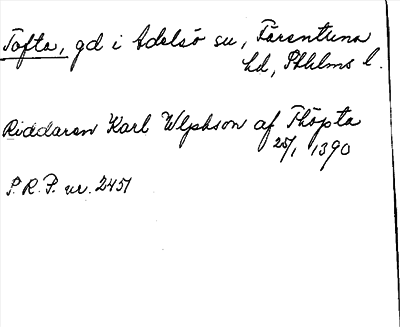 Tofta, gd i Adelsö sn, Färentuna
hd, Sthlms l.
Riddaren Karl Wlphson af Thöpta
25/1 1390
P.R.P. nr. 2451